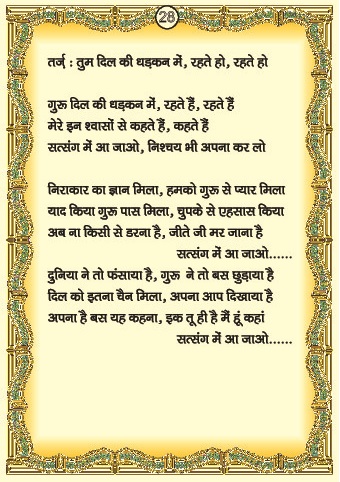 28
तर्ज़ : तुम दिल की धड़कन में, रहते हो, रहते हो
गुरू दिल की धड़कन में, रहते हैं, रहते हैं
मेरे इन श्वासों से कहते हैं, कहते हैं
सत्संग में आ जाओ, निश्चय भी अपना कर लो
निराकार का ज्ञान मिला, हमको गुरू से प्यार मिला
याद किया गुरू पास मिला, चुपके से एहसास किया
अब ना किसी से डरना है, जीते जी मर जाना है
सत्संग में आ जाओ......
दुनिया ने तो फंसाया है, गुरू ने तो बस छुड़ाया है
दिल को इतना चैन मिला, अपना आप दिखाया है
अपना है बस यह कहना, इक तू ही है मैं हूं कहां
सत्संग में आ जाओ......